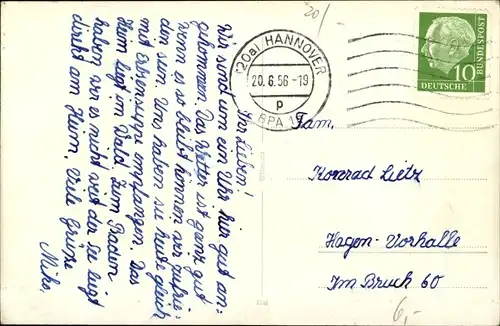 Ihr Lieben!
Wir sind um ein Uhr hier gut an=
gekommen. Das Wetter ist ganz gut
wenn es so bleibt können wir zufrie=
den sein. Uns haben sie heute gleich
mit Erbsensuppe empfangen. Das
Heim liegt im Wald. Zum Baden
haben wir es nicht weit der See liegt
direkt am Heim. Viele Grüße
(20a) HANNOVER
20.6.56-19
p
BPA 1
20/
DEUTSCHE
BUNDESPOST
10
Fam.
Konrad Lietz
Hagen-Vorhalle
Im Bruch 60
6,-